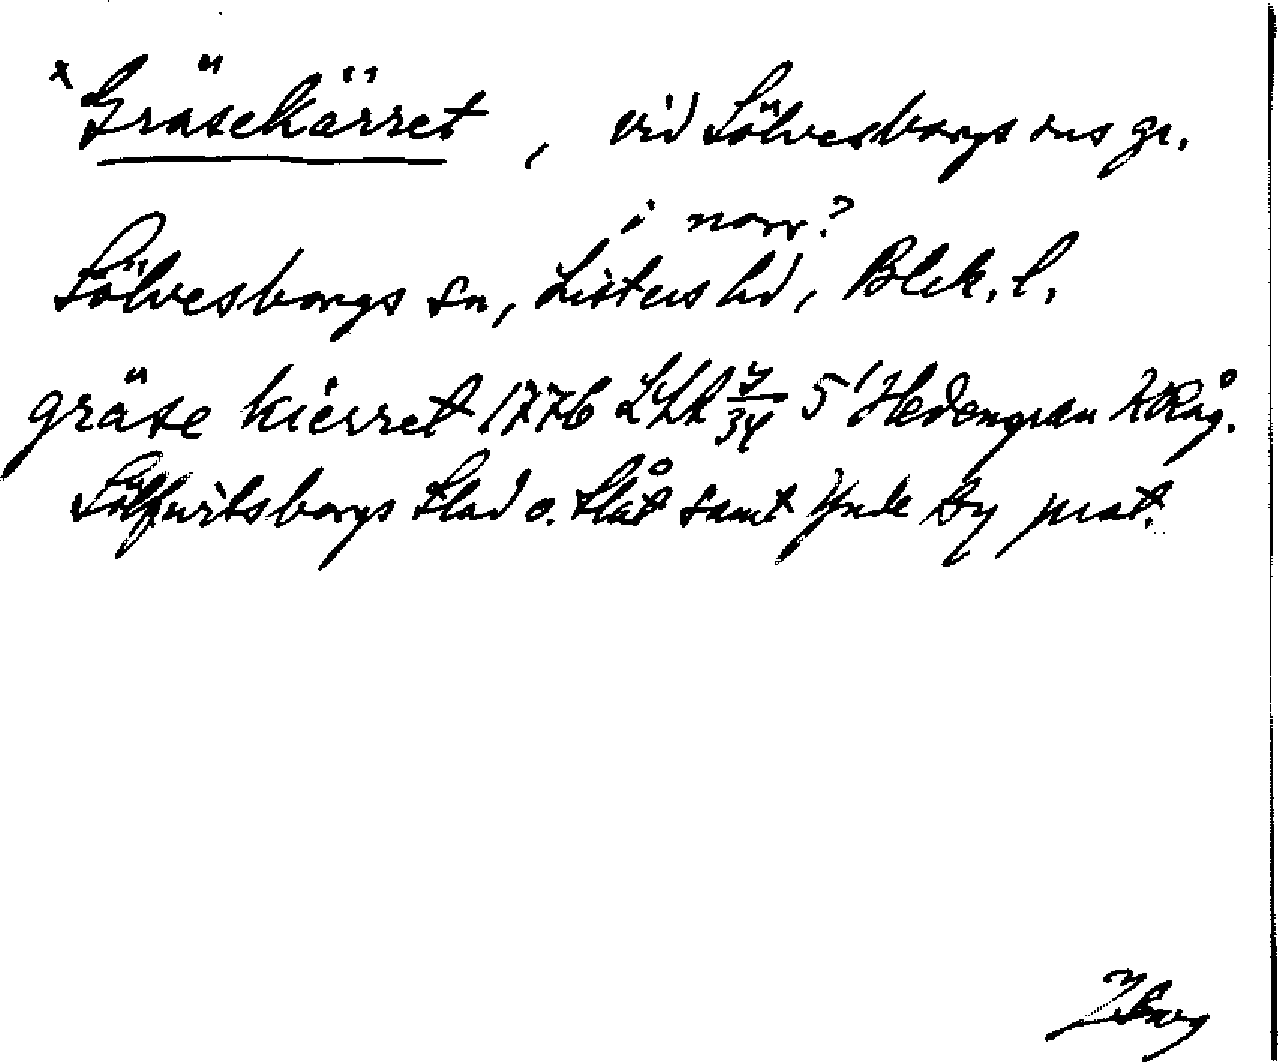 x Gräsekärret, vid Sölvesborgs sns gr.
i norr?
Sölvesborgs sn, Listers hd, Blek. l.
gräse kierret 1776 LLR 7/34 5 Hedengran KRåg.
Sölfwitsborgs Stad o. Slåt samt Ynde by prot.